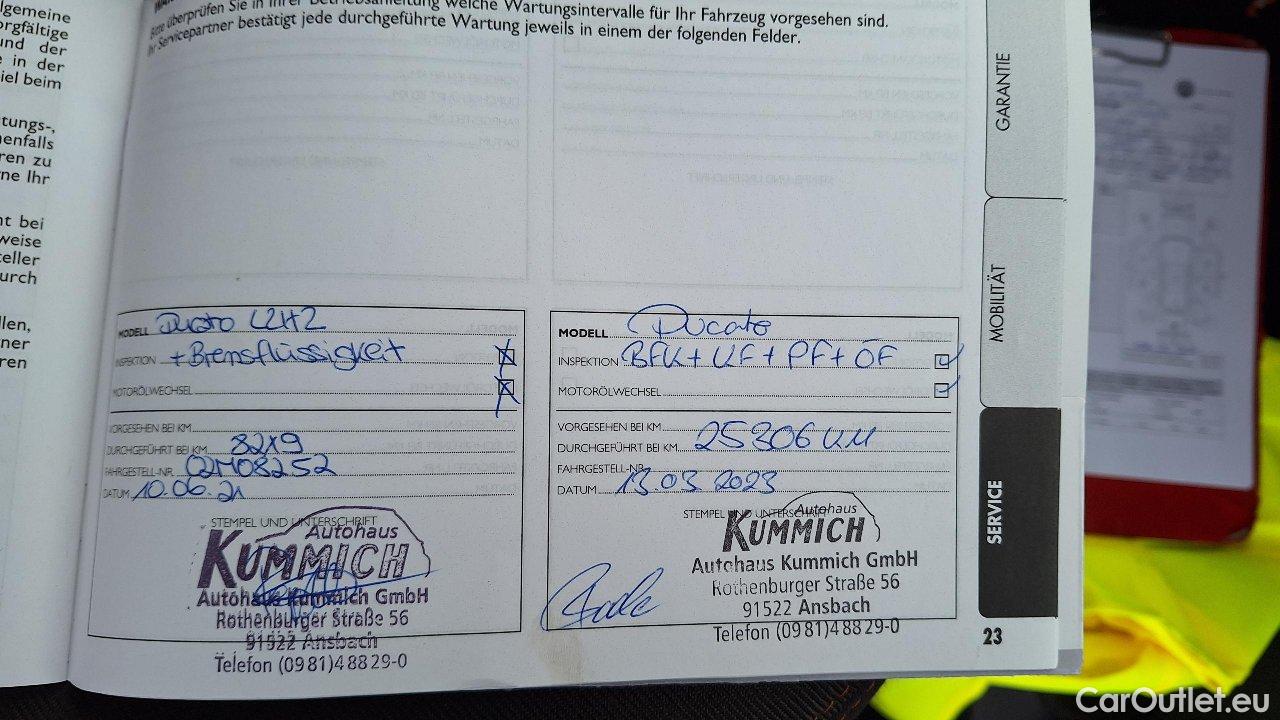 lgemeine
orgfältige
und der
e in der
iel beim
tungs-,
nenfalls
ren zu
ne Ihr
nt bei
weise
teller
urch
llen,
ner
ren
Bitte überprüfen Sie in Ihrer Betriebsanleitung welche Wartungsintervalle für Ihr Fahrzeug vorgesehen sind.
Ihr Servicepartner bestätigt jede durchgeführte Wartung jeweils in einem der folgenden Felder.
MODELL Ducato L2H2
INSPEKTION + Bremsflüssigkeit
MOTORÖLWECHSEL
VORGESEHEN BEI KM
DURCHGEFÜHRT BEI KM 8219
FAHRGESTELL-NR. 02M08252
DATUM 10.06.21
STEMPEL UND UNTERSCHRIFT
Autohaus
KUMMICH
Autohaus Kummich GmbH
Rothenburger Straße 56
91522 Ansbach
Telefon (0981)48829-0
MODELL Ducato
INSPEKTION BFK+KF+PF+ÖF
MOTORÖLWECHSEL
VORGESEHEN BEI KM
DURCHGEFÜHRT BEI KM 25306 KM
FAHRGESTELL-NR.
DATUM 13.03 2023
STEMPEL UND UNTERSCHRIFT
Autohaus
KUMMICH
Autohaus Kummich GmbH
Rothenburger Straße 56
91522 Ansbach
Telefon (0981)48829-0
GARANTIE
MOBILITÄT
SERVICE
23
CarOutlet.eu